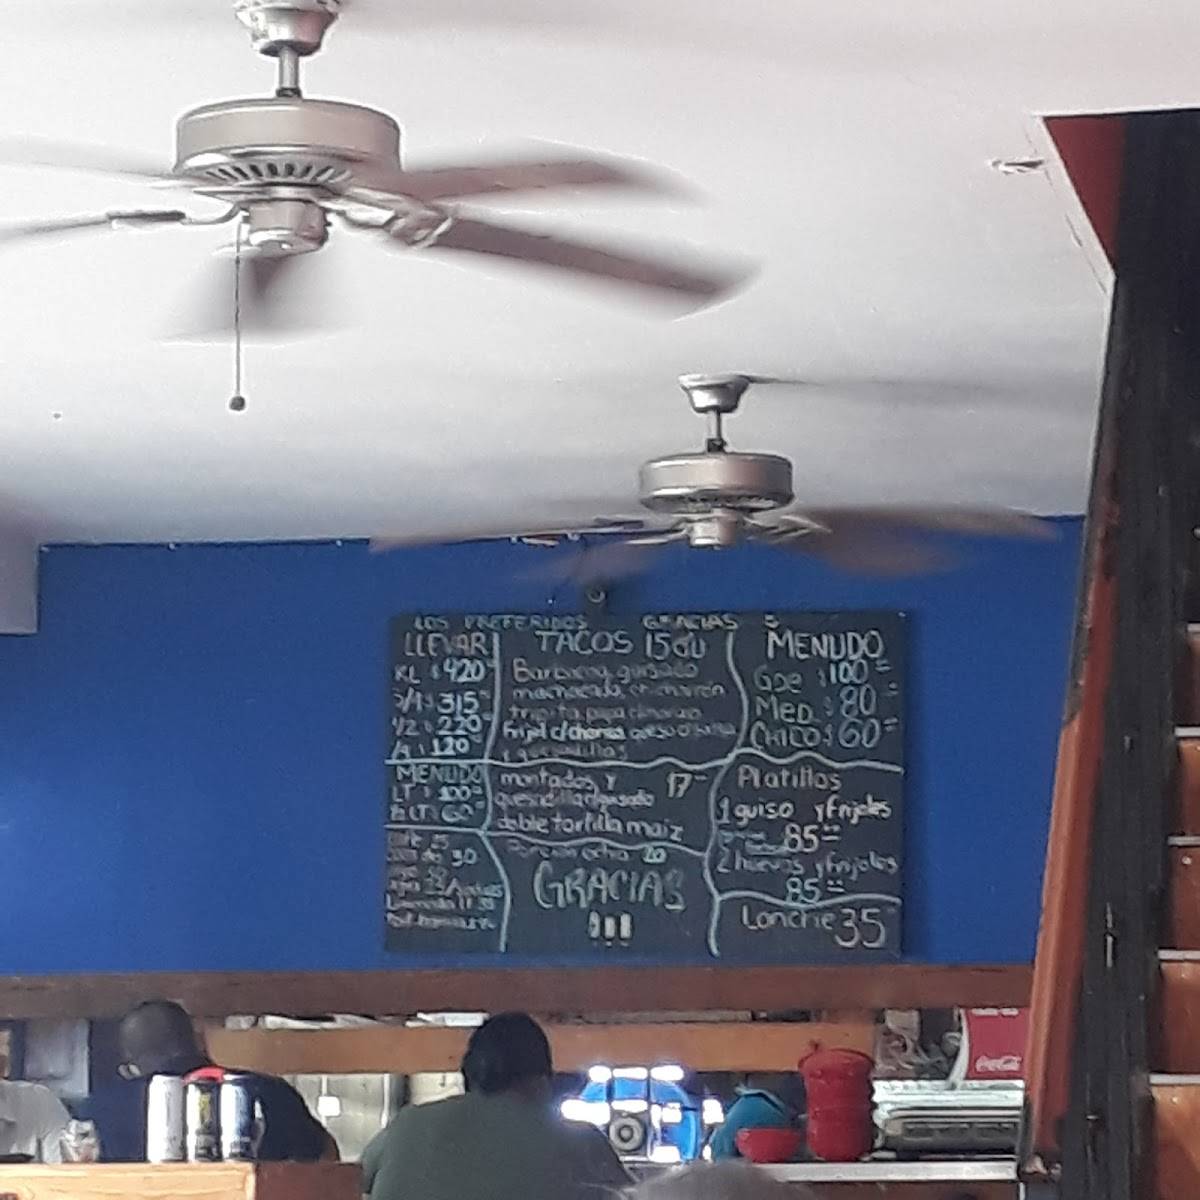 LOS PREFERIDOS GRACIAS
LLEVAR
KL $420
3/4 $315
1/2 $220
1/4 $120
MENUDO
LT $100
60
25
30
TACOS 15
Barbacoa, guisado
machacado, chicharron
tripita, papa c/chorizo
frijol c/chorizo, queso
y quesadillas
montados y 17
quesadilla c/guisado
doble tortilla maiz
Porcion extra 20
GRACIAS
MENUDO
Gde $100
Med. $80
CHICO $60
Platillos
1 guiso y frijoles
85
2 huevos y frijoles
85
Lonche 35
Coca-Cola